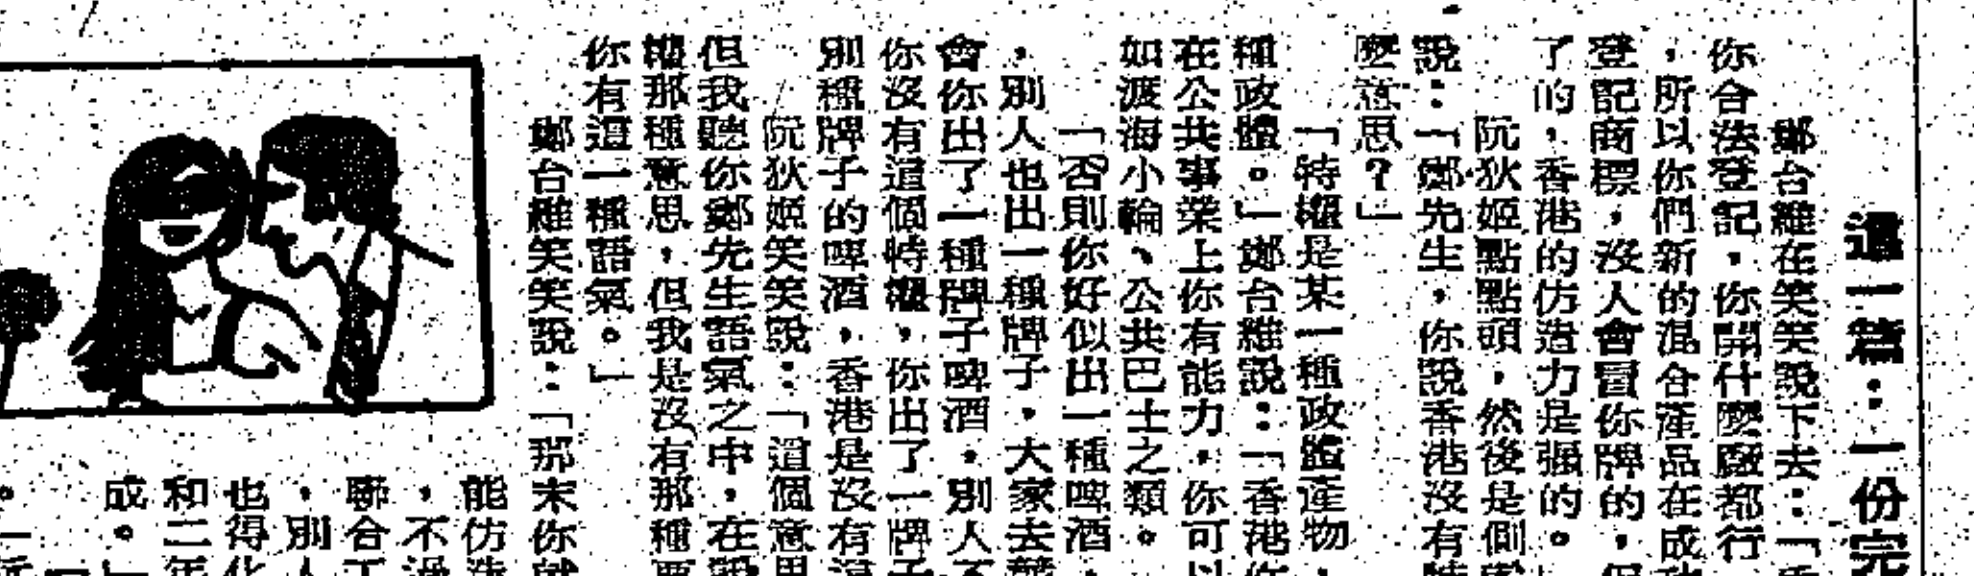 這一篇：一份完
鄭台維在笑笑說下去：「
你合法登記，你開什麼廠都行
，所以你們新的混合產品在成
登記商標，沒人會冒你牌的，但
了的，香港的仿造力是強的。
阮狄姬點點頭，然後是側
說：「鄭先生，你說香港沒有特
麼意思？」
「特權是某一種政體產物，
種政體。」鄭台維說：「香港你
在公共事業上你有能力，你可以
如渡海小輪、公共巴士之類。
「否則你好似出一種啤酒，
，別人也出一種牌子，大家去
會你出了一種牌子啤酒，別人不
你沒有這個特權，你出了一牌子
別種牌子的啤酒，香港是沒有這
阮狄姬笑笑說：「這個意思
但我聽你鄭先生語氣之中，在說
權那種意思，但我是沒有那種要
你有這一種語氣。」
鄭台維笑笑說：「那末你就
能仿造
，不過
聯合工
，別人
也得化
和二年
成。」